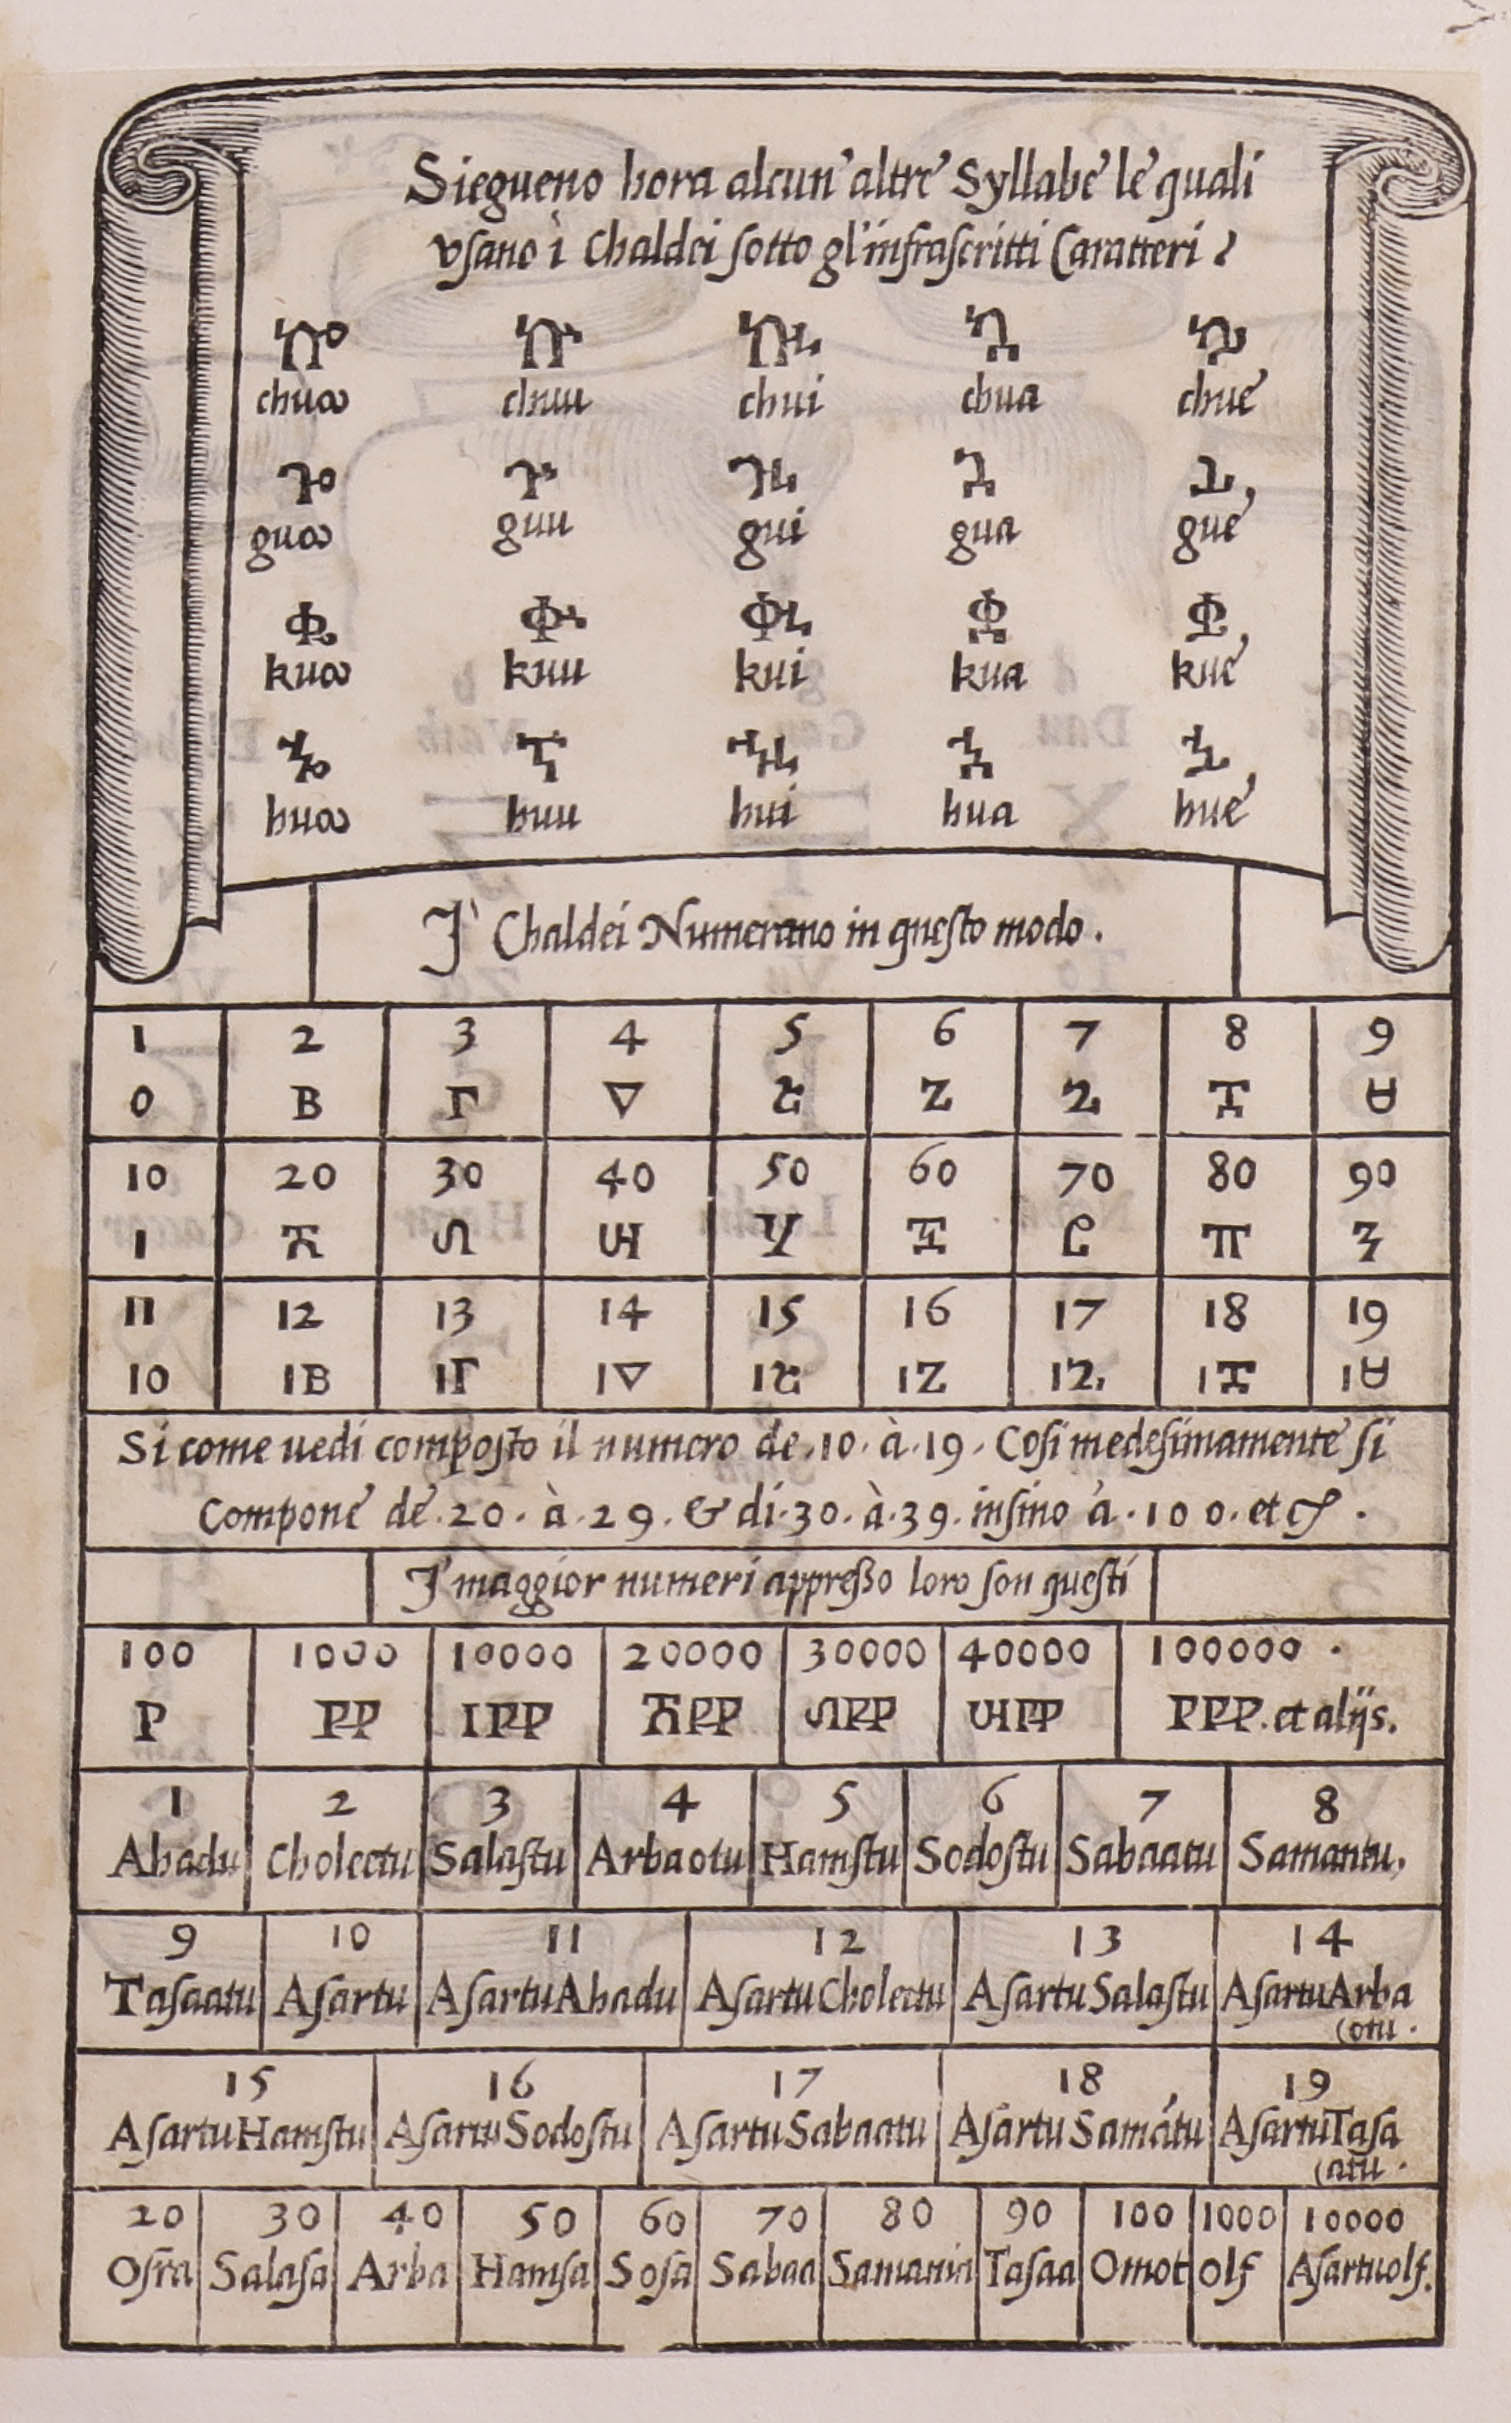 Siegueno hora alcun'altre Syllabe le quali
vsano i Chaldei sotto gl'infrascritti Caratteri
ኰ ኵ ኲ ኳ ኴ
chuω chuu chui chua chue
ጐ ጕ ጒ ጓ ጔ
guω guu gui gua gue
ቈ ቍ ቊ ቋ ቌ
kuω kuu kui kua kue
ኈ ኍ ኊ ኋ ኌ
huω huu hui hua hue
I Chaldei Numerano in questo modo.
1 2 3 4 5 6 7 8 9
፩ ፪ ፫ ፬ ፭ ፮ ፯ ፰ ፱
10 20 30 40 50 60 70 80 90
፲ ፳ ፴ ፵ ፶ ፷ ፸ ፹ ፺
11 12 13 14 15 16 17 18 19
፲፩ ፲፪ ፲፫ ፲፬ ፲፭ ፲፮ ፲፯ ፲፰ ፲፱
Si come uedi composto il numero de.10.à.19. Cosi medesimamente si
Compone de.20.à.29.& di.30.à.39.insino à.100.et cꝭ.
I maggior numeri appreßo loro son questi
100 1000 10000 20000 30000 40000 100000.
፻ ፻፻ ፲፻፻ ፳፻፻ ፴፻፻ ፵፻፻ ፻፻፻.et alijs.
1 2 3 4 5 6 7 8
Ahadu Cholectu Salastu Arbaotu Hamstu Sodostu Sabaatu Samantu,
9 10 11 12 13 14
Tasaatu Asartu AsartuAhadu AsartuCholectu AsartuSalastu AsartuArba
(otu.
15 16 17 18 19
AsartuHamstu AsartuSodostu AsartuSabaatu AsartuSamātu AsartuTasa
(atu.
20 30 40 50 60 70 80 90 100 1000 10000
Osra Salasa Arba Hamsa Sosa Sabaa Samania Tasaa Omot olf Asartuolf.